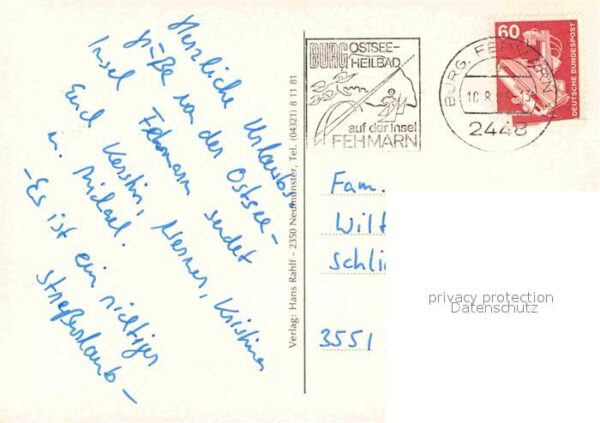 Herzliche Urlaubs-
grüße von der Ostsee-
Insel Fehmarn sendet
Euch Kerstin, Werner, Kristina
u. Michael.
- Es ist ein richtiger
Streßurlaub -
Verlag: Hans Rahlf - 2350 Neumünster, Tel. (04321) 8 11 81
BURG OSTSEE-
HEILBAD
auf der Insel
FEHMARN
BURG, FEHMARN
10.8.
2448
60
DEUTSCHE BUNDESPOST
Fam.
Wilt
Schli
3551
privacy protection
Datenschutz